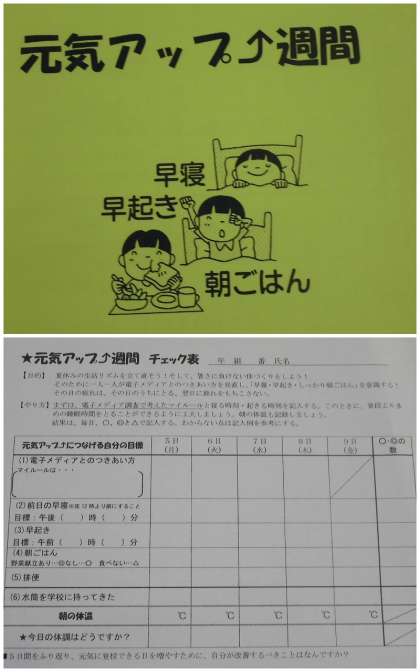 元気アップ⤴週間
早寝
早起き
朝ごはん
★元気アップ⤴週間 チェック表 年 組 番 氏名
【目的】 夏休みの生活リズムを立て直そう！そして、暑さに負けない体づくりをしよう！
そのために一人一人が電子メディアとのつきあい方を見直し、「早寝・早起き・しっかり朝ごはん」を意識する！
その日の疲れは、その日のうちにとる。翌日に疲れをもちこさない。
【やり方】まずは、電子メディア調査で考えたマイルールと寝る時刻・起きる時刻を記入する。このときに、普段より多
めの睡眠時間をとることができるように工夫しましょう。朝の体温も記録しましょう。
結果は、毎日、〇、◎と△で記入する。わからない点は記入例を参考にする。
元気アップ⤴につなげる自分の目標 5日(月) 6日(火) 7日(水) 8日(木) 9日(金) 〇・◎の数
(1)電子メディアとのつきあい方
マイルールは・・・
(2)前日の早寝※夜12時より前にすること
目標：午後（ ）時（ ）分
(3)早起き
目標：午前（ ）時（ ）分
(4)朝ごはん
野菜献立あり…◎なし…〇 食べない…△
(5)排便
(6)水筒を学校に持ってきた
朝の体温 ℃ ℃ ℃ ℃ ℃
★今日の体調はどうですか？
■5日間をふり返り、元気に登校できる日を増やすために、自分が改善するべきことはなんですか？